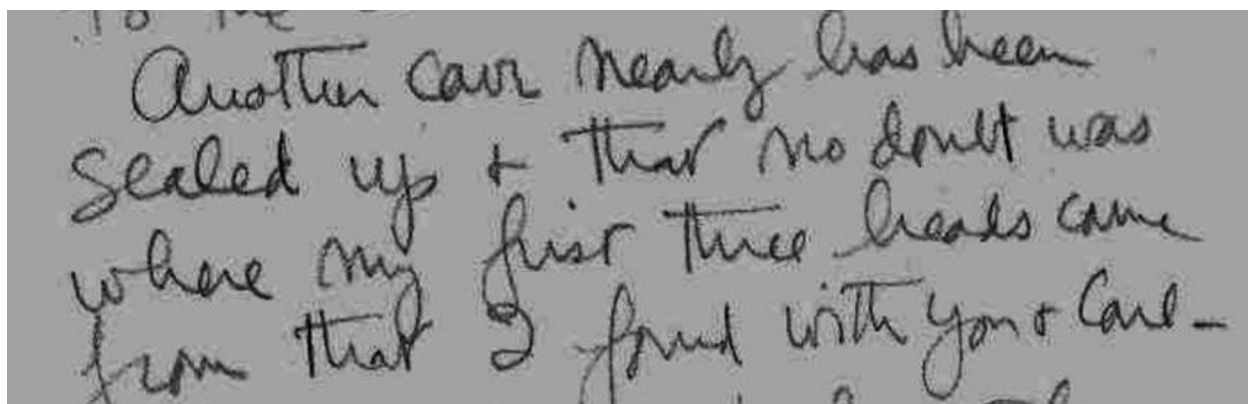 to the
Another cave nearby has been
sealed up + that no doubt was
where my first three heads came
from that I found with you + Carl -